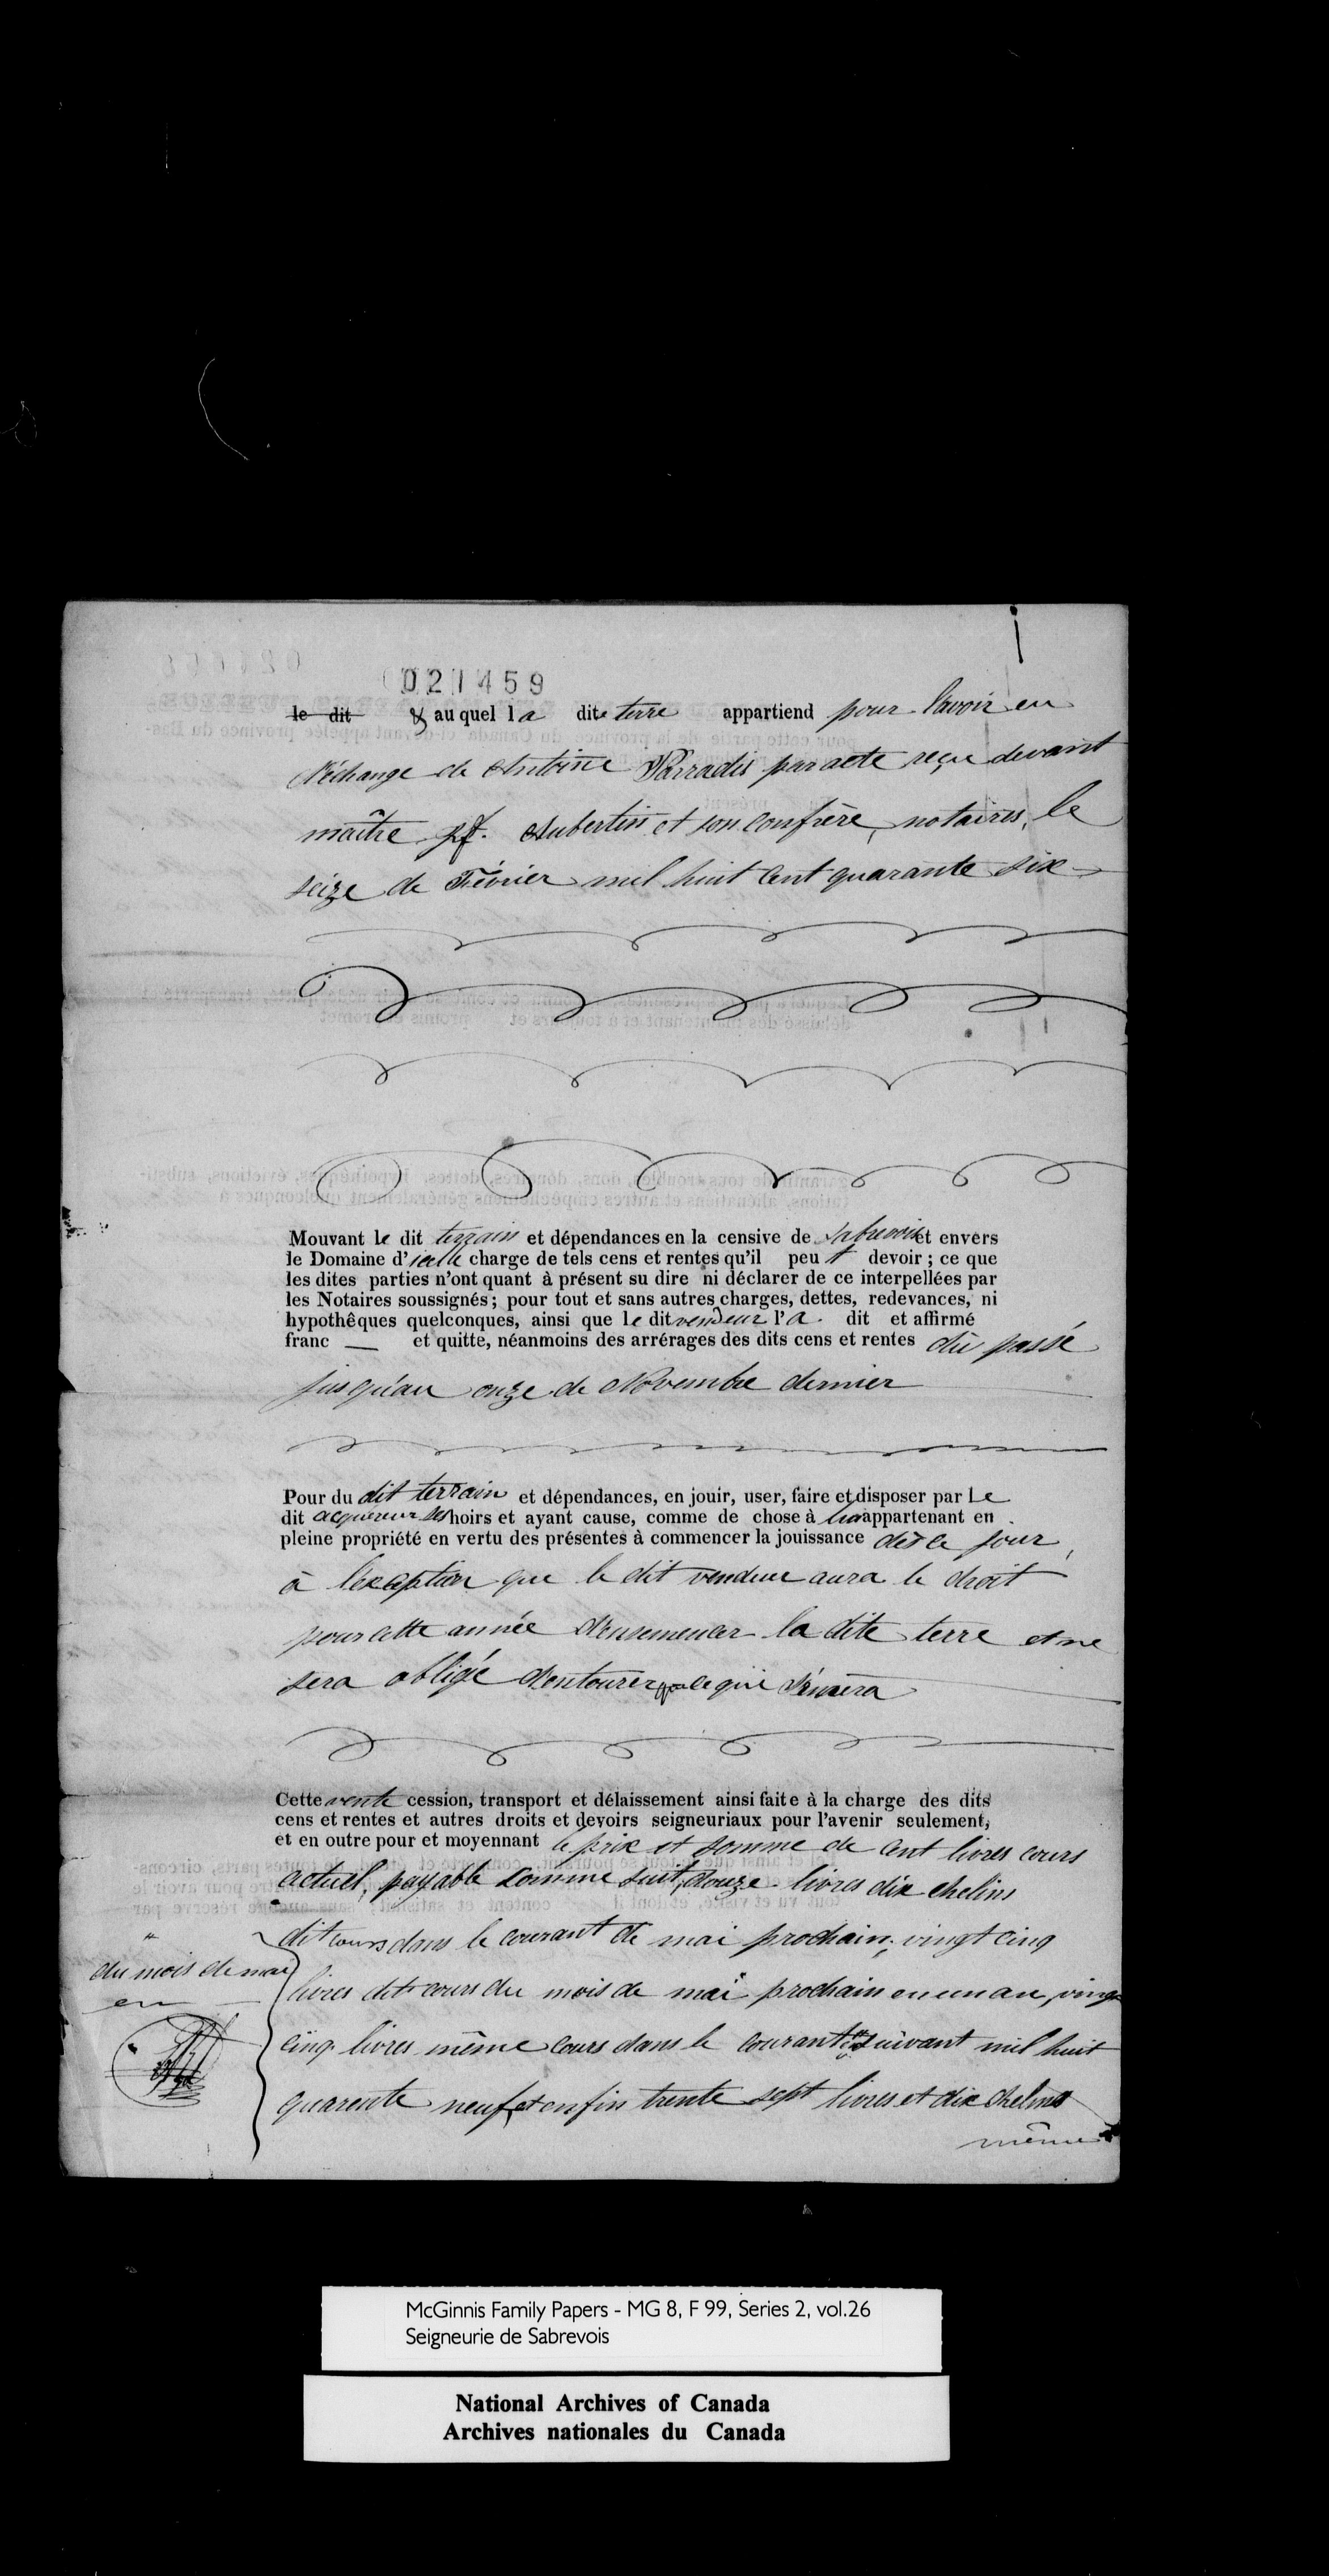 021459
le dit & au quel la dite terre appartiend pour lavoir eu
d'échange de Antoine Parradis par acte reçu devant
maître pf. Aubertin et son confrère, notaires, le
seize de Février mil huit cent quarante six
Mouvant le dit terrain et dépendances en la censive de Sabrevois et envers
le Domaine d'icelle charge de tels cens et rentes qu'il peut devoir ; ce que
les dites parties n'ont quant à présent su dire ni déclarer de ce interpellées par
les Notaires soussignés ; pour tout et sans autres charges, dettes, redevances, ni
hypothêques quelconques, ainsi que le dit vendeur l'a dit et affirmé
franc — et quitte, néanmoins des arrérages des dits cens et rentes du passé
jusqu'au onze de Novembre dernier
Pour du dit terrain et dépendances, en jouir, user, faire et disposer par Le
dit acquéreur ses hoirs et ayant cause, comme de chose à lui appartenant en
pleine propriété en vertu des présentes à commencer la jouissance dès ce jour,
à l'exception que le dit vendeur aura le droit
pour cette année d'ensemencer la dite terre et ne
sera obligé d'entourer que ce qu'il sémera
Cette vente cession, transport et délaissement ainsi faite à la charge des dits
cens et rentes et autres droits et devoirs seigneuriaux pour l'avenir seulement,
et en outre pour et moyennant le prix et somme de cent livres cours
actuel, payable comme suit, douze livres dix chelins
dit cours dans le courant de mai prochain; vingt cinq
livres dit cours du mois de mai prochain en un an, vingt
cinq livres même cours dans le courant " suivant mil huit
quarente neuf, et enfin trente sept livres et dix chelins
même
"
du mois de mai
en
McGinnis Family Papers - MG 8, F 99, Series 2, vol.26
Seigneurie de Sabrevois
National Archives of Canada
Archives nationales du Canada